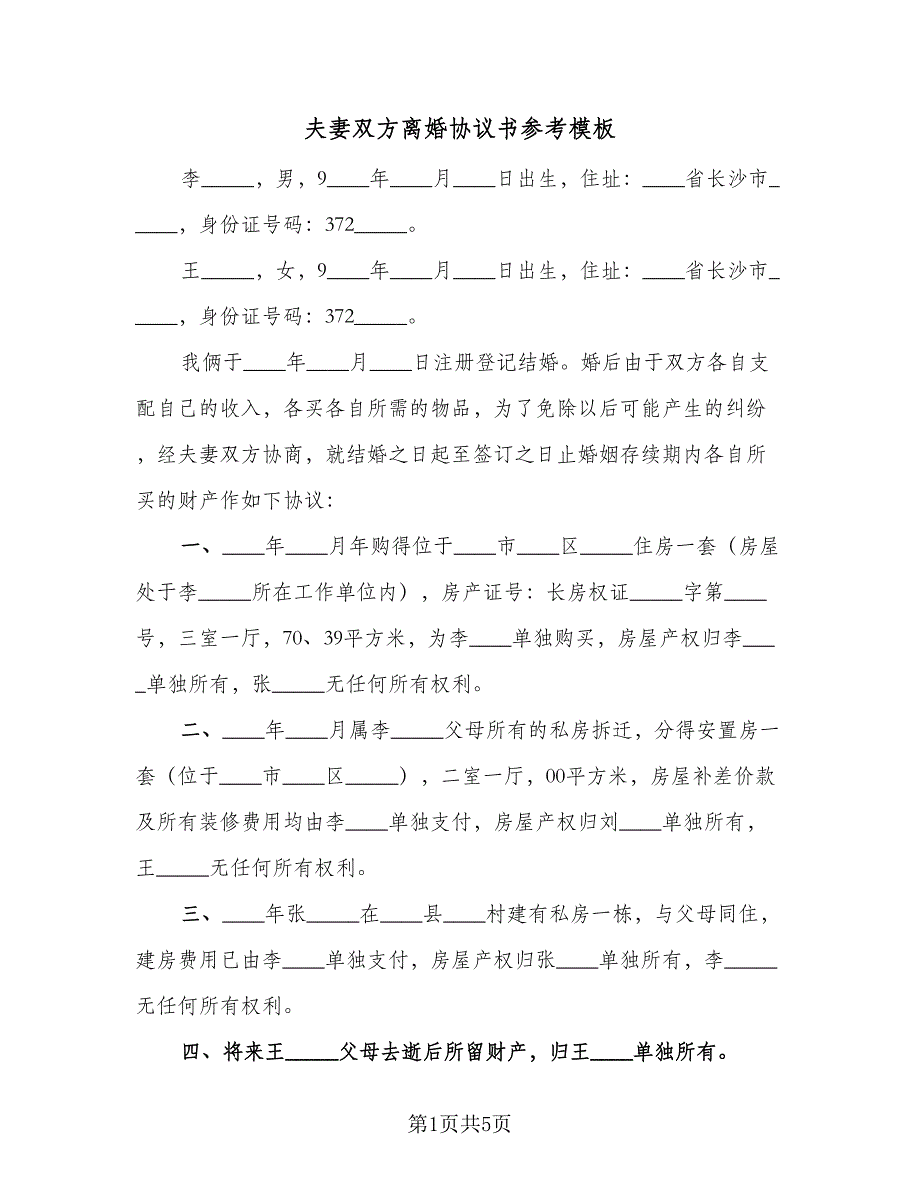 夫妻双方离婚协议书参考模板
李_____，男，9____年____月____日出生，住址：____省长沙市_
____，身份证号码：372_____。
王_____，女，9____年____月____日出生，住址：____省长沙市_
____，身份证号码：372_____。
我俩于____年____月____日注册登记结婚。婚后由于双方各自支
配自己的收入，各买各自所需的物品，为了免除以后可能产生的纠纷
，经夫妻双方协商，就结婚之日起至签订之日止婚姻存续期内各自所
买的财产作如下协议：
一、____年____月年购得位于____市____区_____住房一套（房屋
处于李_____所在工作单位内），房产证号：长房权证_____字第____
号，三室一厅，70、39平方米，为李____单独购买，房屋产权归李___
_单独所有，张_____无任何所有权利。
二、____年____月属李_____父母所有的私房拆迁，分得安置房一
套（位于____市____区_____），二室一厅，00平方米，房屋补差价款
及所有装修费用均由李____单独支付，房屋产权归刘____单独所有，
王_____无任何所有权利。
三、____年张_____在____县____村建有私房一栋，与父母同住，
建房费用已由李____单独支付，房屋产权归张____单独所有，李_____
无任何所有权利。
四、将来王_____父母去逝后所留财产，归王____单独所有。
第1页共5页